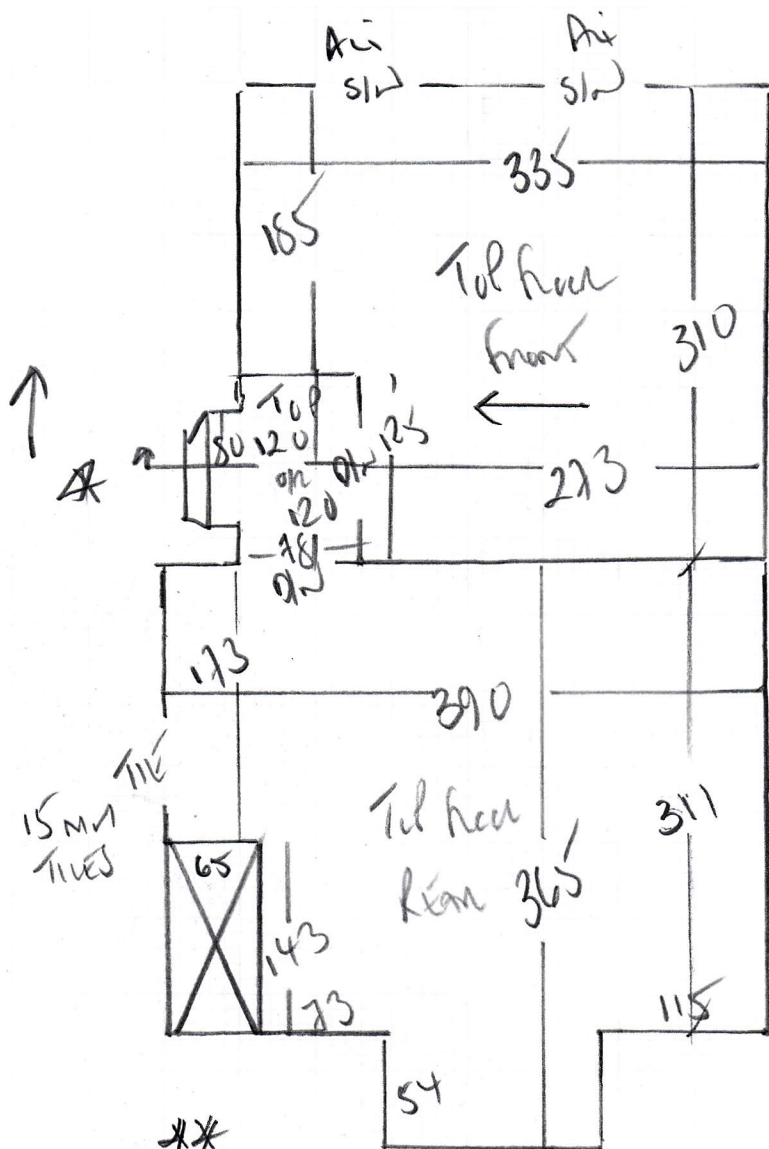 Au Au
S/W S/W
335
185
Top Floor
Front
310
Top
80 120
on
D/W
125
120
273
78
D/W
173
390
TILE
15MM
TILES
65
Top Floor
Rear
365
311
143
73
115
54
**